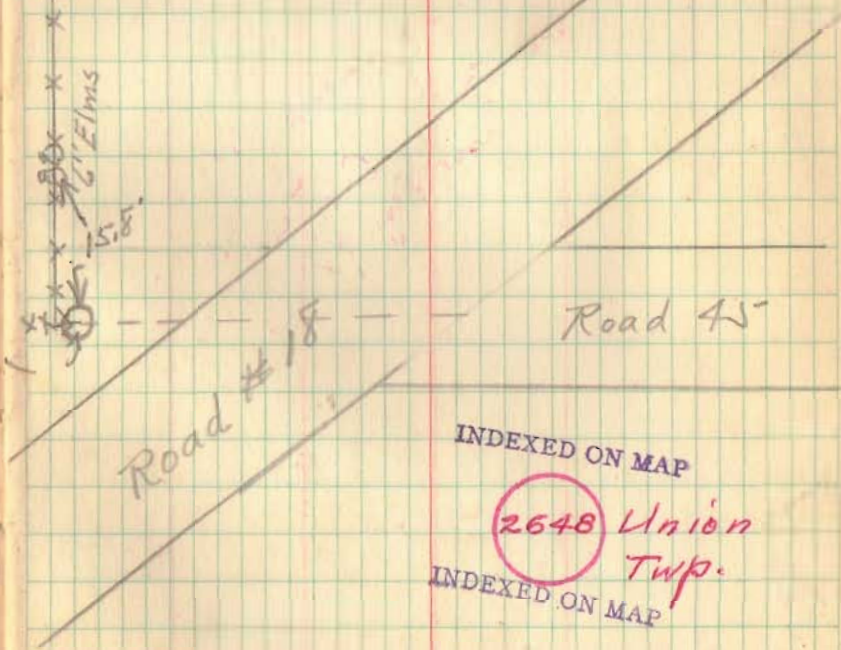 6" Elms
15.8.
Road # 18
Road 45
INDEXED ON MAP
2648 Union
Twp.
INDEXED ON MAP